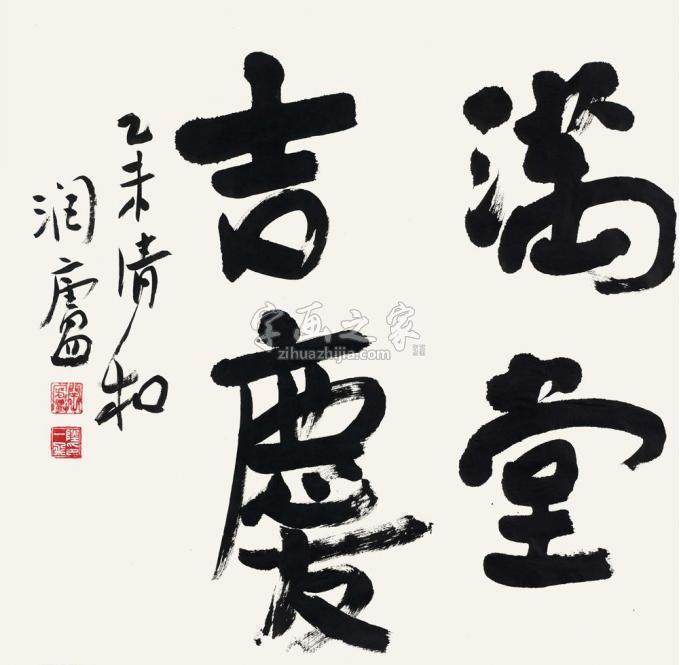 满堂
吉慶
乙未清和
润廬
字画之家
zihuazhijia.com